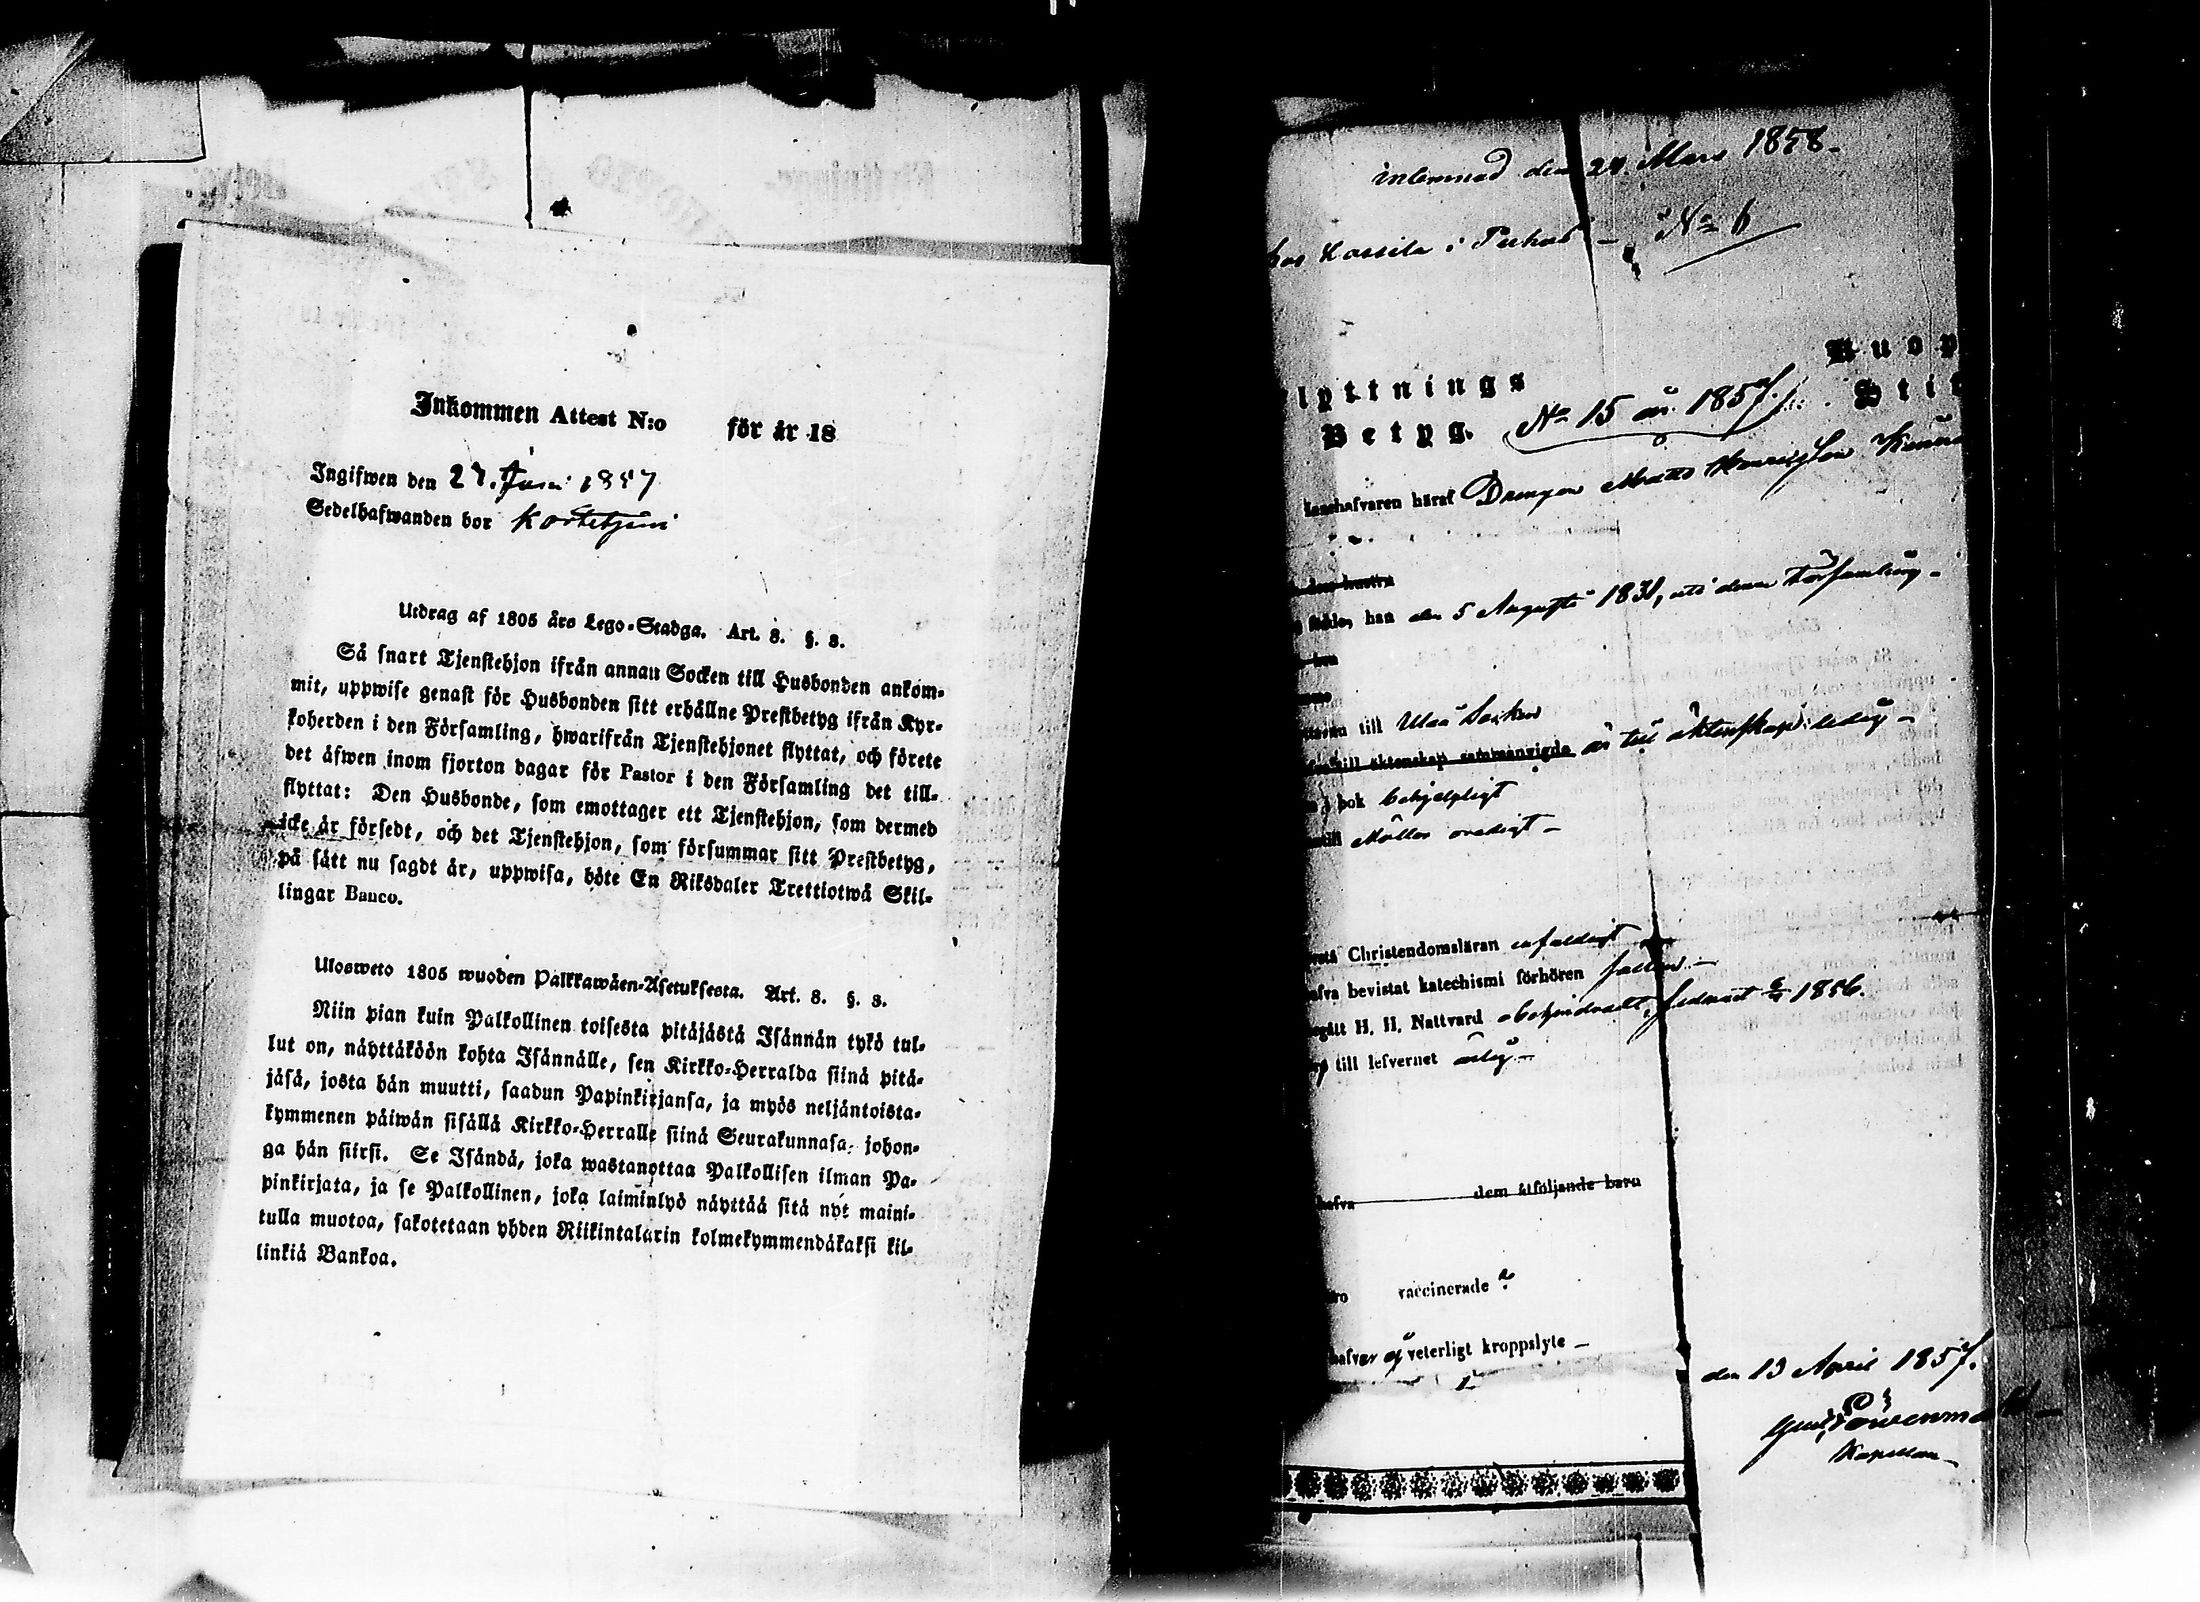 Inkommen Attest N:o för år 18
Ingifwen den 27. Juni 1857
Sedelhafwanden bor
Utdrag af 1805 års Lego-Stadga. Art. 8. §. 3.
Så snart Tjenstehjon ifrån annan Socken till Husbonden ankom-
mit, uppwise genast för Husbonden sitt erhållne Prestbetyg ifrån Kyr-
koherden i den Församling, hwarifrån Tjenstehjonet flyttat, och förete
det äfwen inom fjorton dagar för Pastor i den Församling det till-
flyttat: Den Husbonde, som emottager ett Tjenstehjon, som dermed
icke är försedt, och det Tjenstehjon, som försummar sitt Prestbetyg,
på sätt nu sagdt är, uppwisa, böte En Riksdaler Trettiotwå Skil-
lingar Banco.
Ulosweto 1805 wuoden Palkkawäen-Asetuksesta. Art. 8. §. 3.
Niin pian kuin Palkollinen toisesta pitäjästä Isännän tykö tul-
lut on, näyttäköön kohta Isännälle, sen Kirkko-Herralda siinä pitä-
jäsä, josta hän muutti, saadun Papinkirjansa, ja myös neljäntoista-
kymmenen päiwän sisällä Kirkko-Herralle siinä Seurakunnasa, johon-
ga hän siirsi. Se Isändä, joka wastanottaa Palkollisen ilman Pa-
pinkirjata, ja se Palkollinen, joka laiminlyö näyttää sitä nyt maini-
tulla muotoa, sakotetaan yhden Riikintalarin kolmekymmendäkaksi kil-
linkiä Bankoa.
inlemnad den 24. Mars 1858.
hos i N:o 6
lyttnings Kuop
Betyg. N:o 15 år 1857. Stif
haren häraf Drengen Matts Henricsson
hustru
han den 5 Augusti 1831, uti denna Församling
till socken
till äktenskap sammanvigde är till äktenskap ledig
bok behjelpligt
Christendomsläran enfaldigt
bevistat katechismi förhören
H. H. Nattvard obehindradt, sednast 1856.
till lefvernet ärlig
hafva dem åtföljande barn
vaccinerade
hafver ej veterligt kroppslyte
den 13 April 1857.
Kapellan